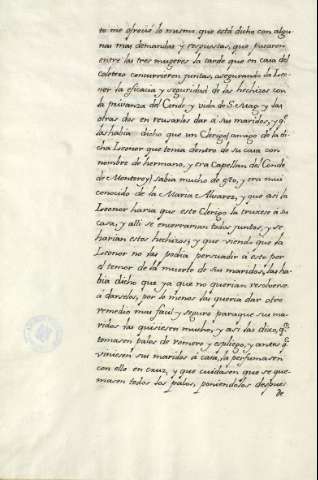 to me ofreció lo mesmo que está dicho con algu-
nas mas demandas y respuestas, que pasaron
entre las tres mugeres la tarde que en casa del
Coletero concurrieron juntas, asegurando la Leo-
nor la eficacia y seguridad de los hechizos con
la privanza del Conde, y vida de S. Mag. y las
otras dos en reusarlos dar a sus maridos, y q.
las había dicho que un Clerigo (amigo de la di-
cha Leonor que tenia dentro de su casa con
nombre de hermano, y era Capellan del Conde
de Monterey) sabia mucho de esto, y era muy
conocido de la Maria Alvarez, y que así la
Leonor haria que este Clerigo la truxese á su
casa, y alli se encerrarian todos juntos, y se
harian estos hechizos, y que viendo que la
Leonor no las podia persuadir á esto por
el temor de la muerte de sus maridos, las ha-
bia dicho que ya que no querian resolverse
á darselos, por lo menos las queria dar otro
remedio muy facil y seguro para que sus ma-
ridos las quisiesen mucho, y asi las dixo, q.
tomasen palos de romero y espliego, y antes q.
viniesen sus maridos á casa, la perfumasen
con ello en cruz, y que cuidasen que se que-
masen todos los palos, poniendolos despues
de